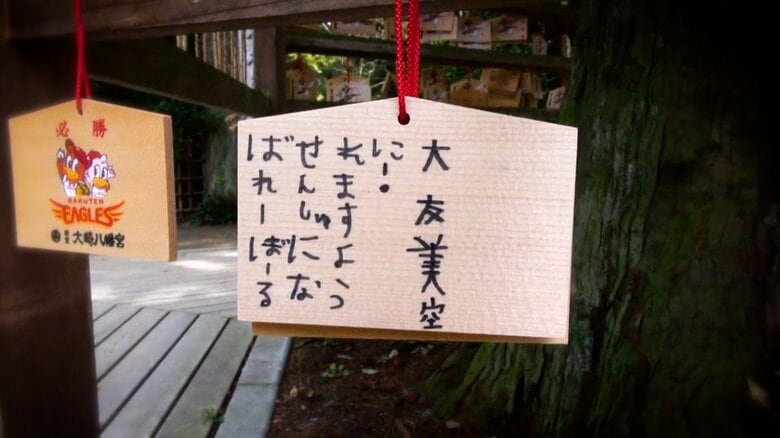 必勝
RAKUTEN
EAGLES
大崎八幡宮
ばれーぼーる
せんしゅにな
れますよう
に!
大友美空